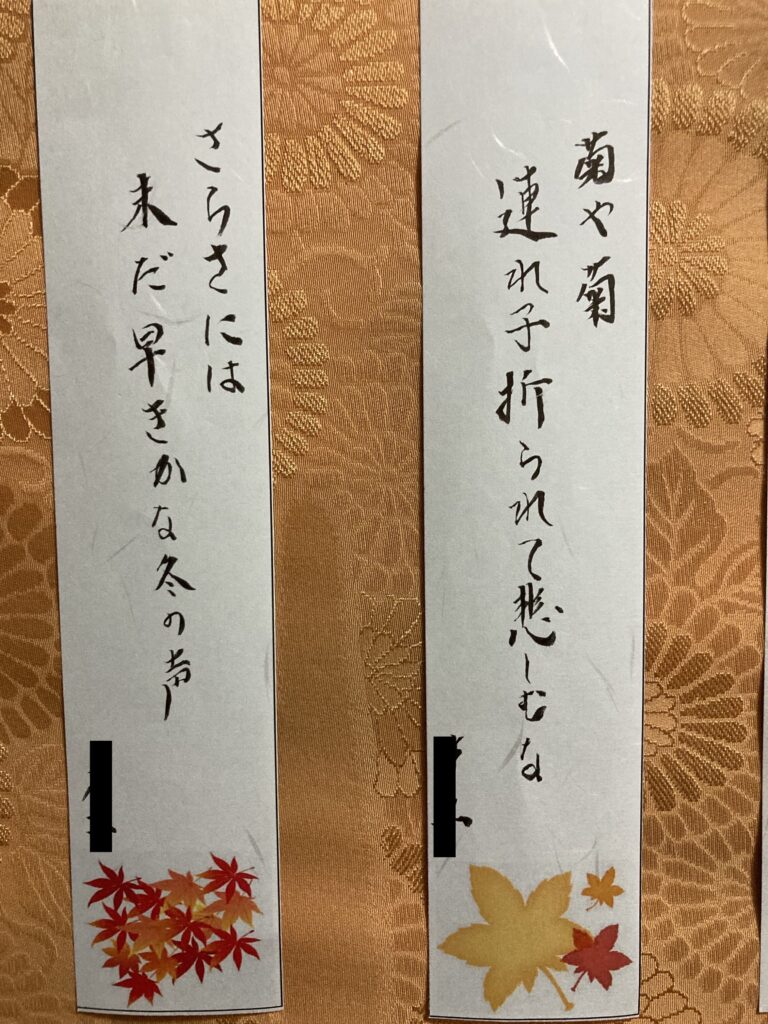 菊や菊
連れ子折られて悲しむな
さらさには
未だ早きかな冬の声